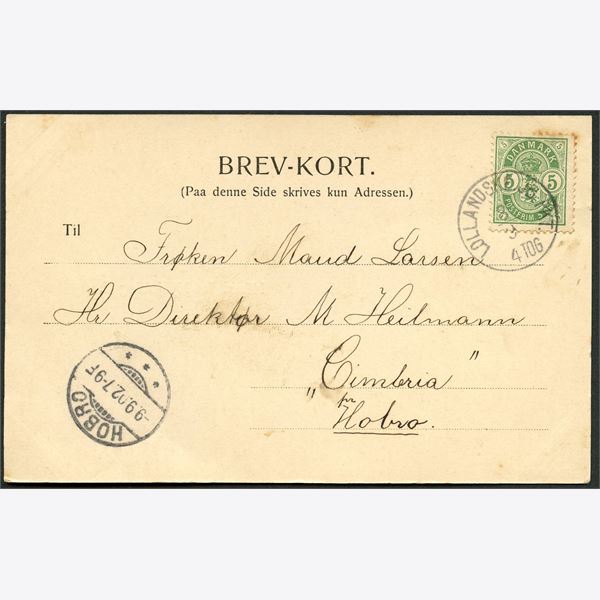 BREV-KORT.
(Paa denne Side skrives kun Adressen.)
DANMARK
5 5
5 5
POSTFRIM.
LOLLANDSK
4 TOG
Til Frøken Maud Larsen
Hr Direktør M Heilmann
„Cimbria"
pr
Hobro.
HOBRO
* * *
-9.9.02.7-9F